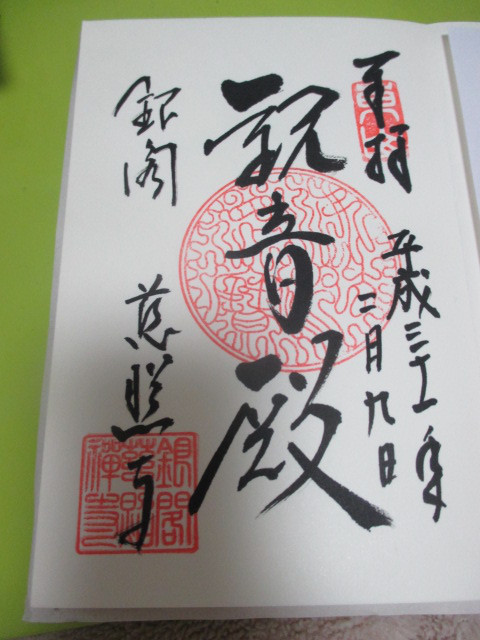 奉拝
平成三十一年
三月九日
観音殿
銀閣
慈照寺
銀閣
慈照
禅寺